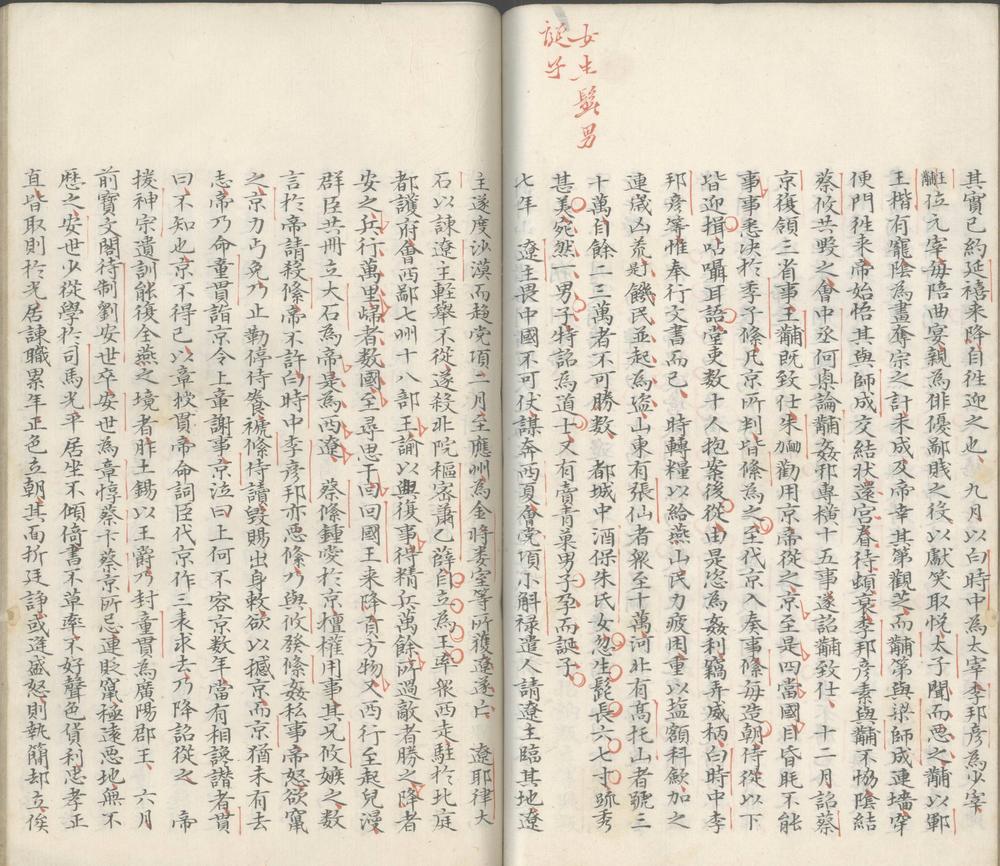 女生髭男
誕子
其實已約延禧来降自徃迎之也　九月以白時中為太宰李邦彦為少宰
黼位元宰每陪曲宴親為俳優鄙賤之役以獻笑取悦太子聞而惡之黼以鄆
王楷有寵陰為畫奪宗之計未成及帝幸其第觀芝而黼第與梁師成連墻穿
便門徃来帝始悟其與師成交結狀還宫眷待頓衰李邦彦素與黼不恊陰結
蔡攸共毁之會中丞何㮚論黼姦邪專横十五事遂詔黼致仕　十二月詔蔡
京復領三省事王黼既致仕朱勔勸用京帝從之京至是四當國目昏眊不能
事事悉决於季子絛凡京所判皆絛為之至代京入奏事絛每造朝侍從以下
皆迎揖呫囁耳語堂吏数十人抱案後從由是恣為姦利竊弄威柄白時中李
邦彦等惟奉行文書而已　時轉糧以給燕山民力疲困重以塩額科歛加之
連歳凶荒於是饑民並起為盗山東有張仙者衆至十萬河北有髙托山者號三
十萬自餘二三萬者不可勝数　都城中酒保朱氏女忽生髭長六七寸疏秀
甚美宛然一男子特詔為道士又有賣青菓男子孕而誕子
七年　遼主畏中國不可伏謀奔西夏會党項小斛禄遣人請遼主臨其地遼
主遂度沙漠而趨党項二月至應州為金將婁室等所獲遼遂亡　遼耶律大
石以諫遼王輕舉不從遂殺北院樞密蕭乙薛自立為王率衆西走駐於北庭
都護府會西鄙七州十八部王諭以興復事得精兵萬餘所過敵者勝之降者
安之兵行萬里歸者数國至尋思干曰回國王来降貢方物又西行至起兒漫
群臣共冊立大石為帝是為西遼　蔡絛鍾愛於京擅權用事其兄攸嫉之数
言於帝請殺絛帝不許白時中李彦邦亦惡絛乃與攸發絛姦私事帝怒欲竄
之京力丐免乃止勒停侍養褫絛侍讀毁賜出身敕欲以撼京而京猶未有去
志帝乃命童貫詣京令上章謝事京泣曰上何不容京数年當有相讒譖者貫
曰不知也京不得已以章授貫帝命詞臣代京作三表求去乃降詔從之　帝
援神宗遺訓能復全燕之境者胙土錫以王爵乃封童貫為廣陽郡王　六月
前寶文閣待制劉安世卒安世為章惇蔡卞蔡京所忌連貶竄極遠惡地無不
歴之安世少從學於司馬光平居坐不傾倚書不草率不好聲色貨利忠孝正
直皆取則於光居諫職累年正色立朝其面折廷諍或逢盛怒則執簡却立俟